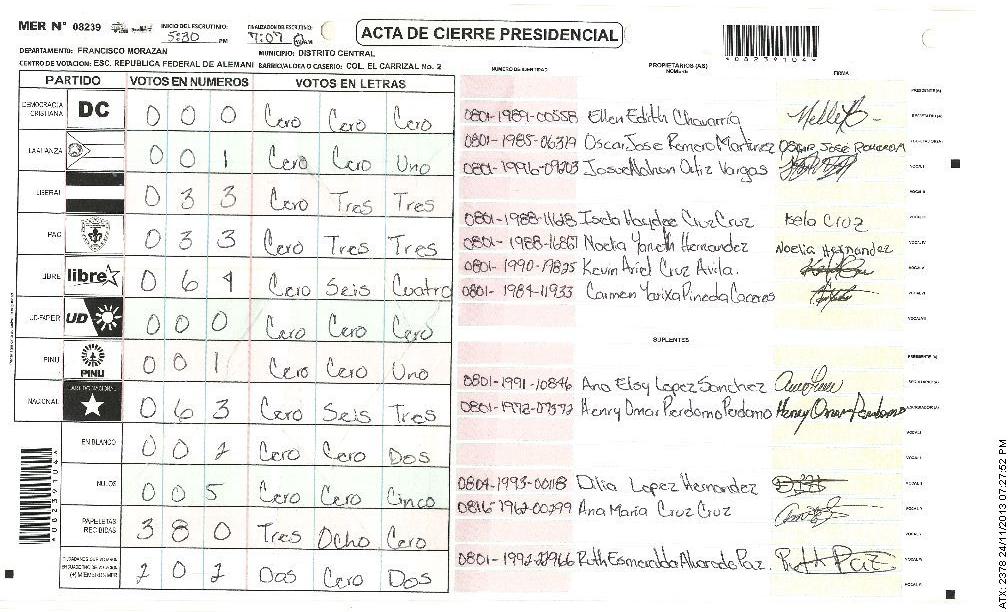 MER N° 08239
INICIO DEL ESCRUTINIO: 5:30 PM
FINALIZACION DEL ESCRUTINIO: 7:07
ACTA DE CIERRE PRESIDENCIAL
*08239104*
DEPARTAMENTO: FRANCISCO MORAZAN
MUNICIPIO: DISTRITO CENTRAL
CENTRO DE VOTACION: ESC. REPUBLICA FEDERAL DE ALEMANI BARRIO/ALDEA O CASERIO: COL. EL CARRIZAL No. 2
PARTIDO VOTOS EN NUMEROS VOTOS EN LETRAS
DEMOCRACIA CRISTIANA DC 0 0 0 Cero Cero Cero
LA ALIANZA 0 0 1 Cero Cero Uno
LIBERAL 0 3 3 Cero Tres Tres
PAC 0 3 3 Cero Tres Tres
LIBRE libre 0 6 4 Cero Seis Cuatro
UD-FAPER UD 0 0 0 Cero Cero Cero
PINU PINU 0 0 1 Cero Cero Uno
NACIONAL PARTIDO NACIONAL 0 6 3 Cero Seis Tres
EN BLANCO 0 0 2 Cero Cero Dos
NULOS 0 0 5 Cero Cero Cinco
PAPELETAS RECIBIDAS 3 8 0 Tres Ocho Cero
(+) MIEMBROS MER 2 0 2 Dos Cero Dos
*08239104*
NUMERO DE IDENTIDAD PROPIETARIOS (AS) NOMBRE FIRMA
PRESIDENTE(A)
0801-1989-00558 Ellen Edith Chavarria SECRETARIO(A)
0801-1985-06319 Oscar Jose Romero Martinez Oscar José Romero M
0801-1996-09203 Josue Nahun Ortiz Vargas VOCAL I
VOCAL II
0801-1988-11628 Isela Haydee Cruz Cruz Isela Cruz VOCAL III
0801-1988-16867 Noelia Yaneth Hernandez Noelia Hernandez VOCAL IV
0801-1990-19825 Kevin Ariel Cruz Avila. VOCAL V
0801-1984-11933 Carmen Yarixa Pineda Caceres VOCAL VI
VOCAL VII
SUPLENTES
PRESIDENTE (A)
0801-1991-10846 Ana Elsy Lopez Sanchez SECRETARIO(A)
0801-1992-07572 Henry Omar Perdomo Perdomo Henry Omar Perdomo ESCRUTADOR(A)
VOCAL I
VOCAL II
0804-1993-00118 Dilia Lopez Hernandez VOCAL III
0816-1962-00299 Ana Maria Cruz Cruz VOCAL IV
VOCAL V
0801-1992-22966 Ruth Esmeralda Alvarado Paz. Ruth Paz VOCAL VI
ATX: 2378 24/11/2013 07:27:52 PM